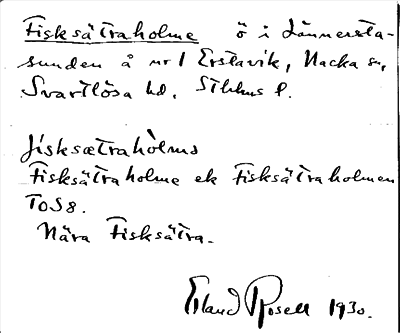 Fisksätraholme ö i Lännersta-
sunden å nr 1 Erstavik, Nacka sn,
Svartlösa hd. Sthlms l.
fisksætrahòlms
Fisksätraholme ek Fisksätraholmen
TOS 8.
Nära Fisksätra.
Erland Rosell 1930.